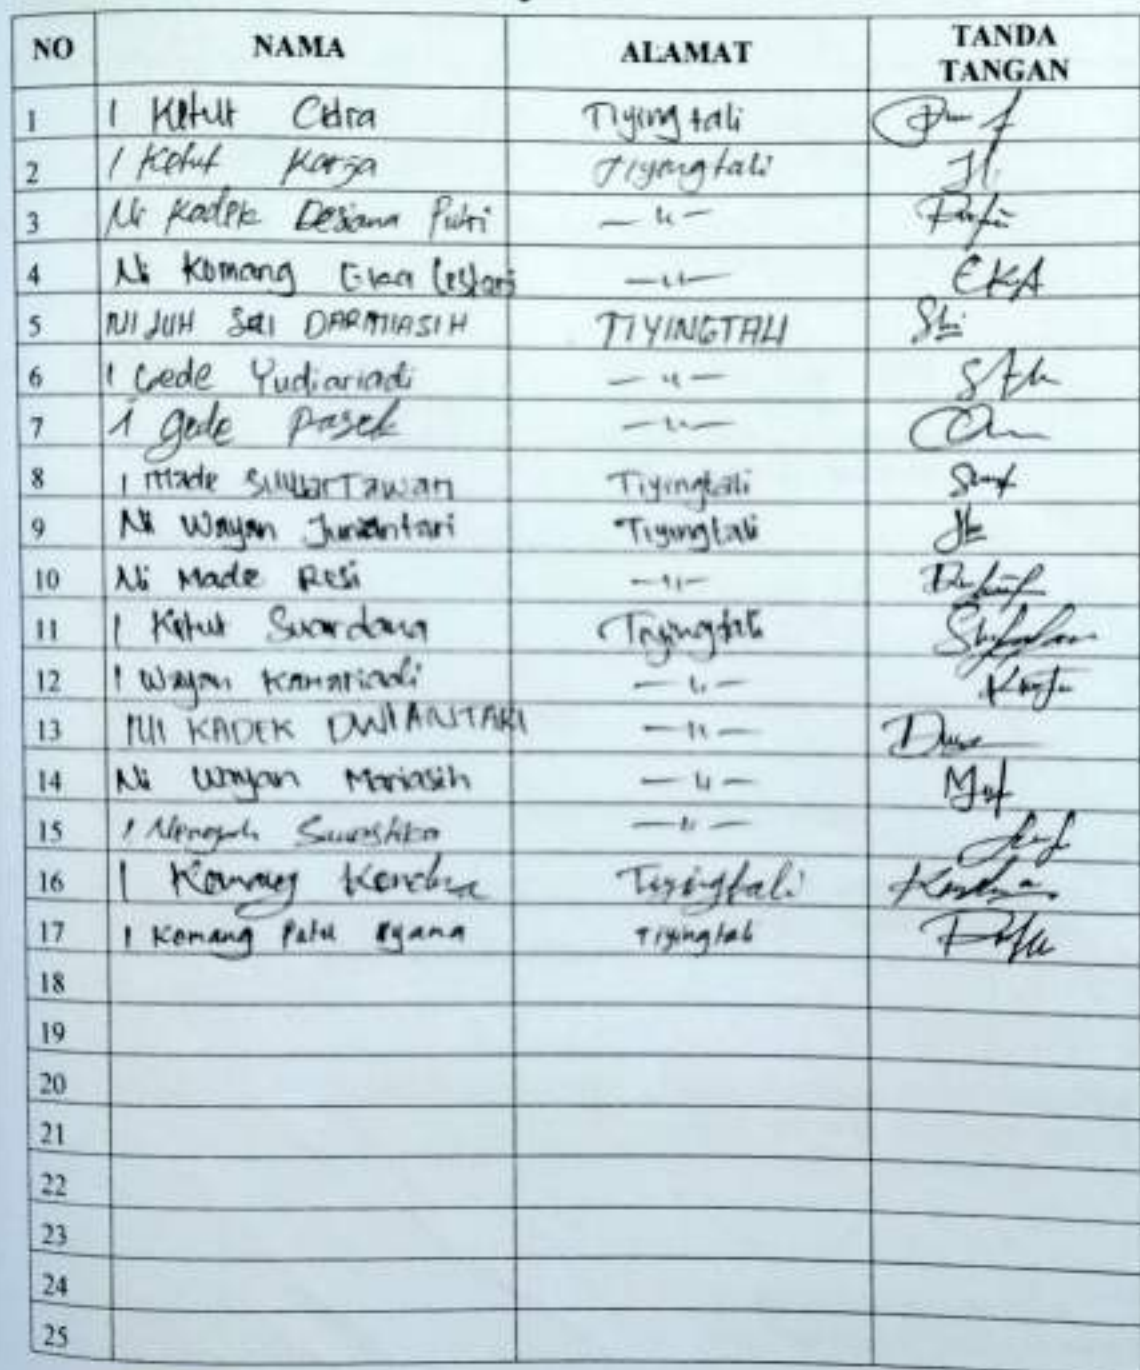 NO NAMA ALAMAT TANDA TANGAN
1 I Ketut Cidra Tiyingtali
2 I Ketut Karja Tiyingtali
3 Ni Kadek Desiana Putri — " —
4 Ni Komang Eka Lestari — " — EKA
5 NI LUH SRI DARMIASIH TIYINGTALI Sri
6 I Gede Yudiariadi — " —
7 I gede pasek — " —
8 I Made Suwartawan Tiyingtali
9 Ni Wayan Juniantari Tiyingtali
10 Ni Made Resi — " —
11 I Ketut Suardana Tiyingtali
12 I Wayan Kamariadi — " —
13 NI KADEK DWIANTARI — " —
14 Ni Wayan Mariasih — " —
15 I Nengah Suastika — " —
16 I Komang Kendra Tiyingtali
17 I Komang Putu Tiyingtali
18
19
20
21
22
23
24
25